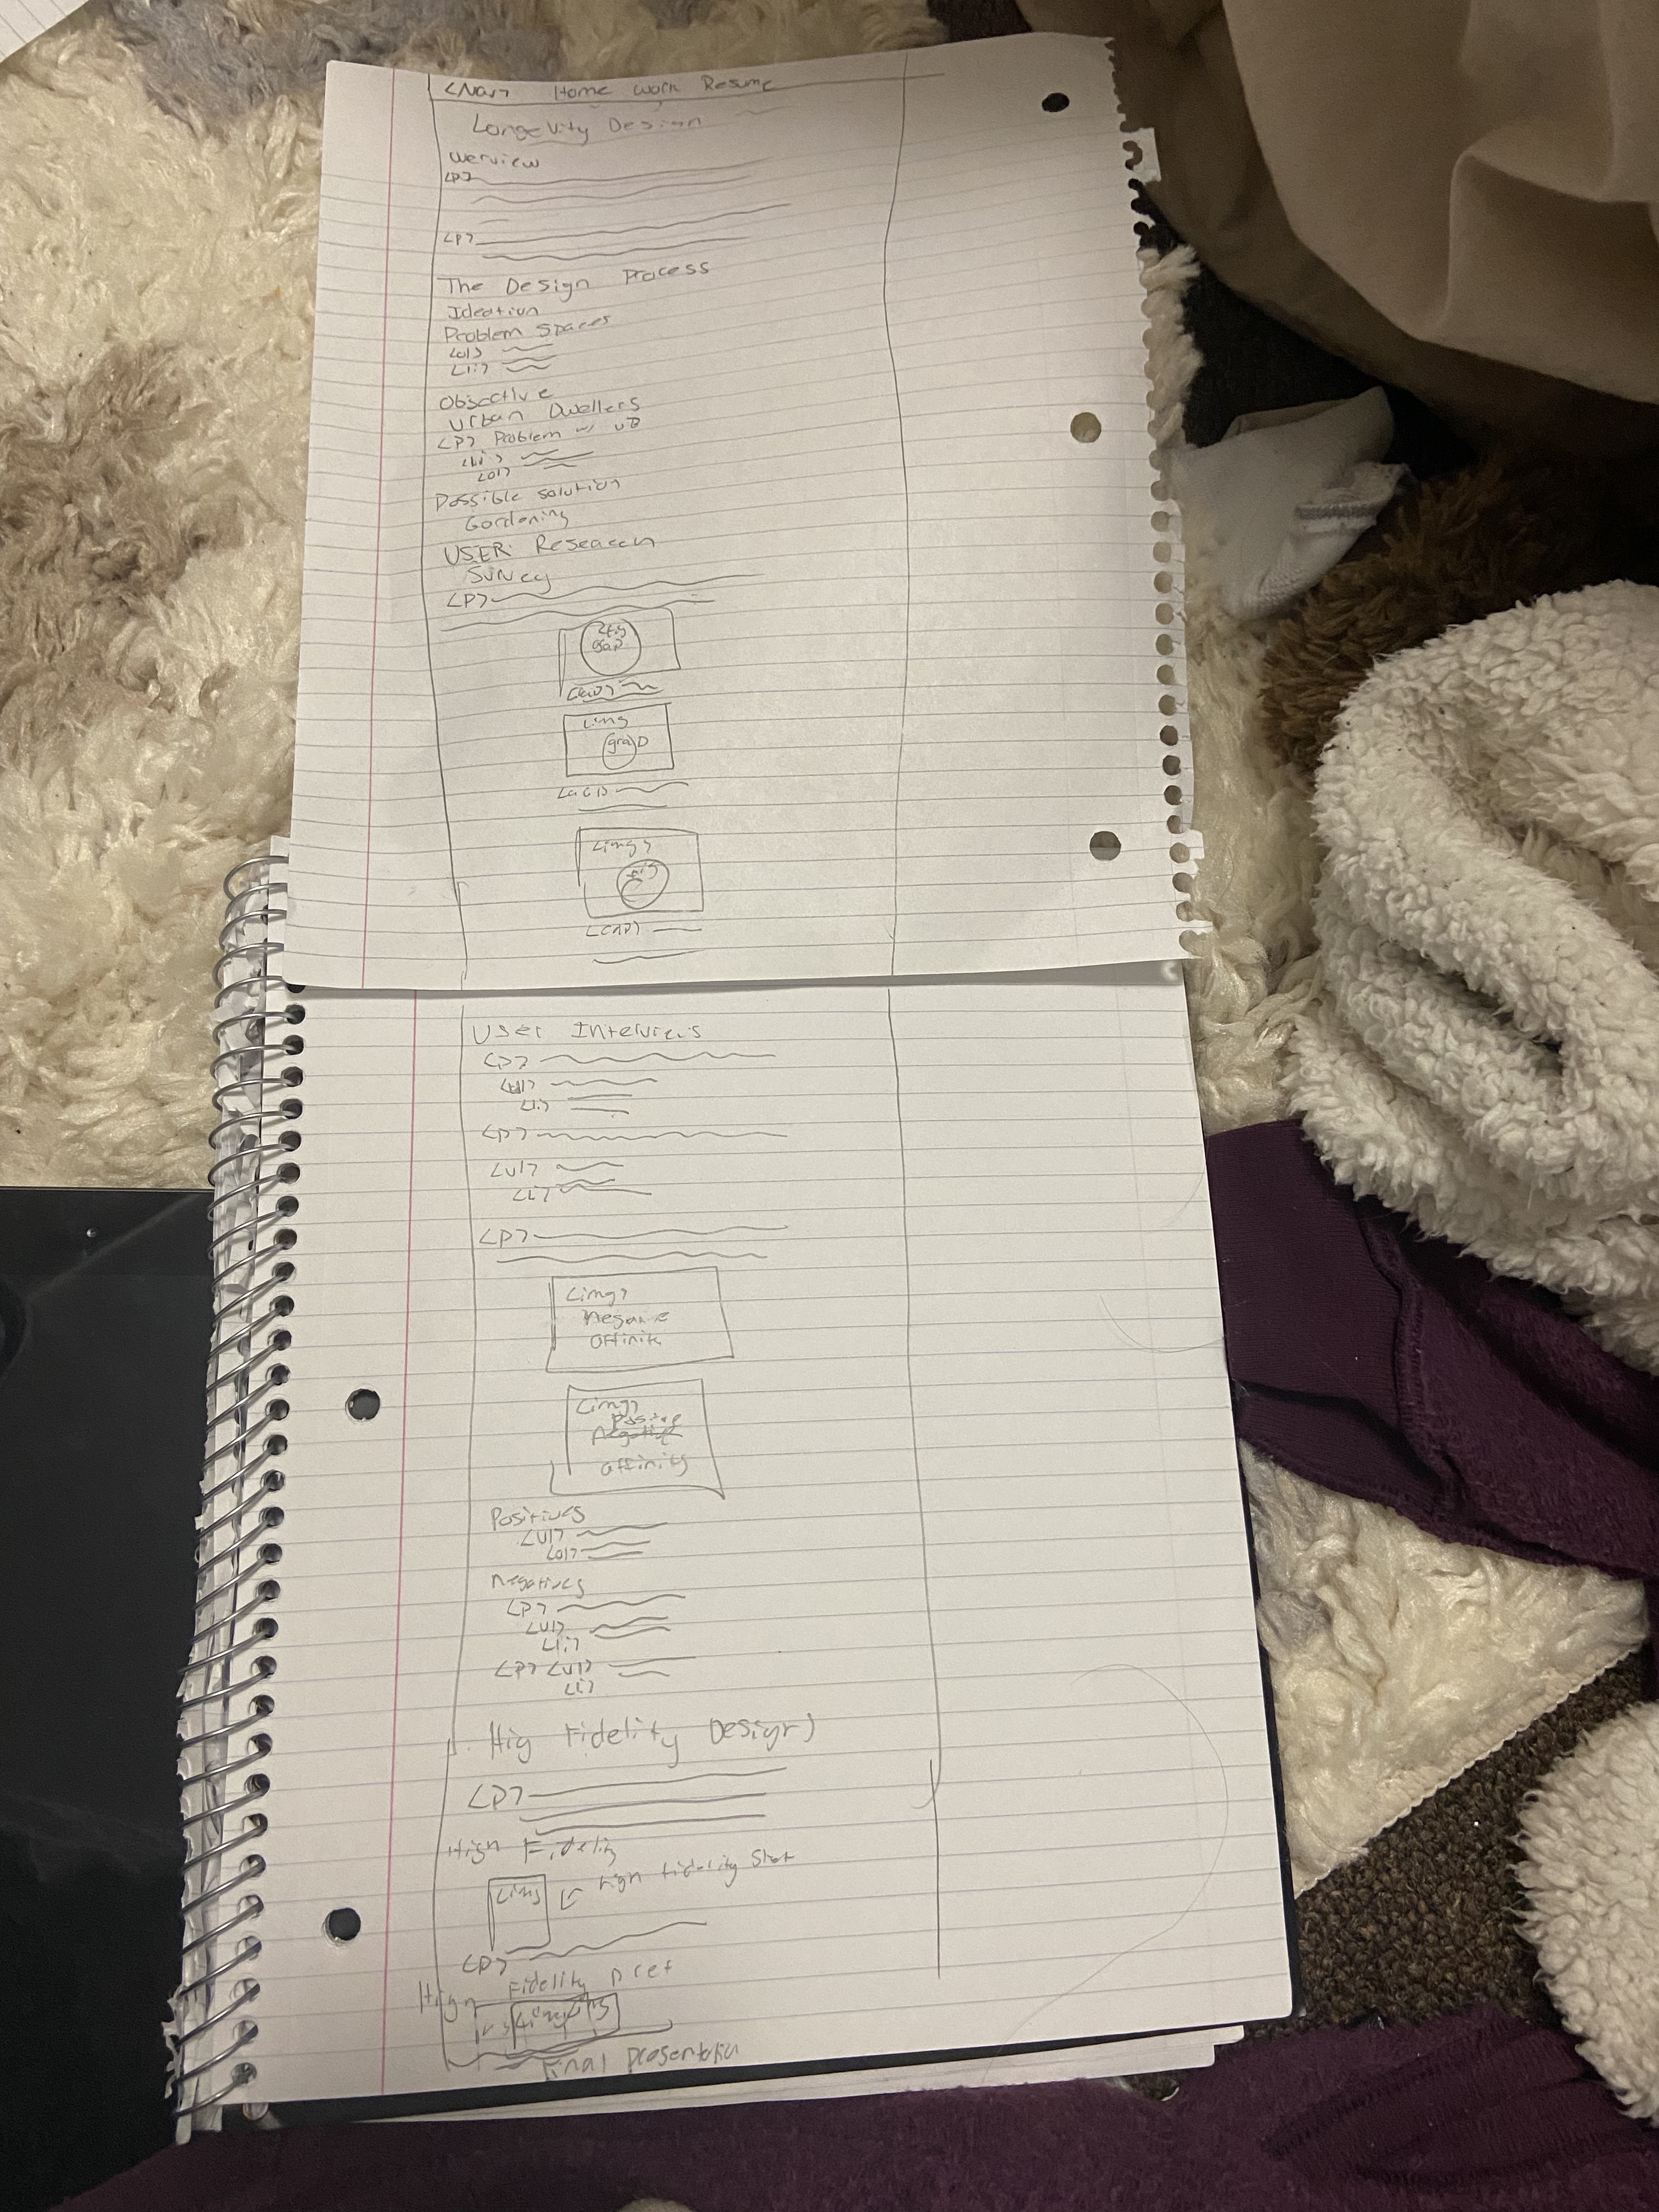 <Nav> Home Work Resume
Longevity Design
Overview
<P>
<P>
The Design Process
Ideation
Problem Spaces
<ol>
<li>
Objective
Urban Dwellers
<P> Problem w/ UD
<li>
<ol>
Possible solution
Gardening
USER Research
Survey
<P>
<img
<img
graD
<img>
fig
<cap>
User Interviews
<P>
<li>
<P>
<ul>
<li>
<P>
<img>
negative
affinit
<img>
Positive
affinity
Positives
<ul>
<ol>
Negatives
<P>
<ul>
<li>
<P> <ul>
<li>
Hig Fidelity Design
<P>
High Fidelity
<img
High Fidelity
<P>
High Fidelity
Final Presentation